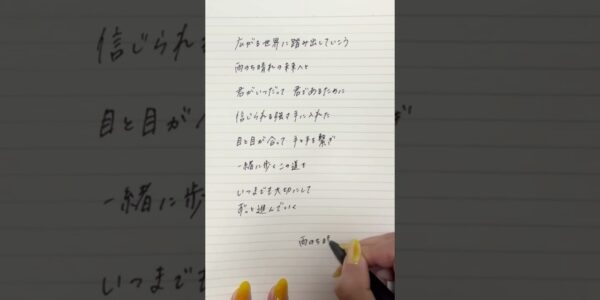 広がる世界に踏み出していこう
雨のち晴れの未来へと
君がいつだって 君であるために
信じられる強さ手に入れた
目と目が合って 手と手を繋ぎ
一緒に歩くこの道を
いつまでも大切にして
ずっと進んでいく
雨のち晴
信じられ
目と目が
一緒に歩
いつまで